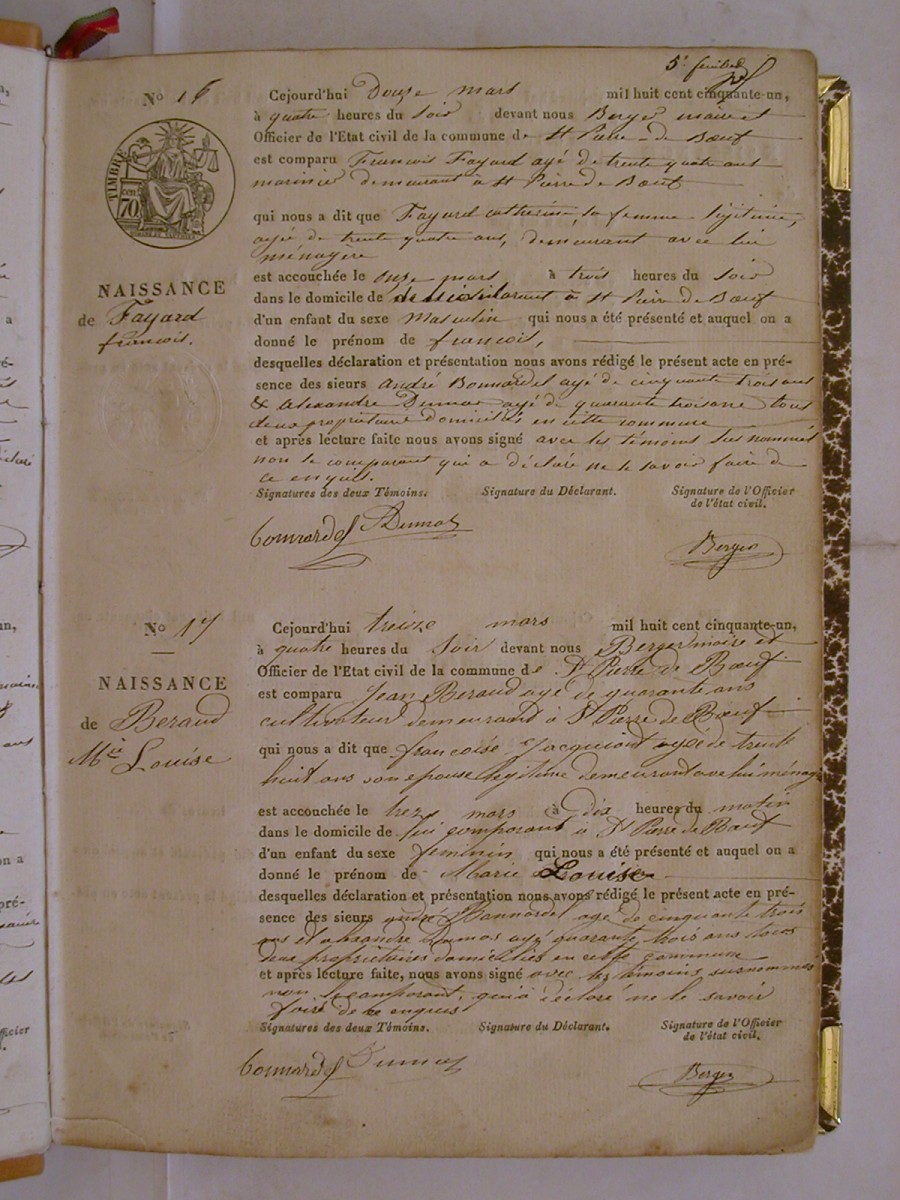 5e feuillet
No 16
TIMBRE
70
NAISSANCE
de Fayard
francois.
Cejourd'hui Douze mars mil huit cent cinquante-un,
à quatre heures du Soir devant nous Berger maire et
Officier de l'Etat civil de la commune de St Pierre-de Bœuf
est comparu Francois Fayard agé de trente quatre ans
marinier demeurant à St Pierre de Bœuf
qui nous a dit que Fayard catherine sa femme légitime,
agée de trente quatre ans, demeurant avec lui
ménagère
est accouchée le onze mars à trois heures du Soir
dans le domicile de déclarant à St Pierre de Bœuf
d'un enfant du sexe Masculin qui nous a été présenté et auquel on a
donné le prénom de francois,
desquelles déclaration et présentation nous avons rédigé le présent acte en pré-
sence des sieurs andré Bonnardel agé de cinquante trois ans
& alexandre Dumas agé de quarante trois ans tous
deux propriétaire domiciliés en cette commune
et après lecture faite nous avons signé avec les témoins sus nommés
non le comparant qui a déclaré ne le savoir faire de
ce enquis.
Signatures des deux Témoins. Signature du Déclarant. Signature de l'Officier
de l'état civil.
Bonnardel Dumas
Berger
No 17
NAISSANCE
de Beraud
Mie Louise
Cejourd'hui treize mars mil huit cent cinquante-un,
à quatre heures du Soir devant nous Berger maire et
Officier de l'Etat civil de la commune de St Pierre de Bœuf
est comparu Jean Beraud agé de quarante ans
cultivateur demeurant à St Pierre de Bœuf
qui nous a dit que francoise Jacquiont agée de trente
huit ans son epouse légitime demeurant avec lui ménag
est accouchée le treize mars à dix heures du matin
dans le domicile de lui comparant à St Pierre de Bœuf
d'un enfant du sexe feminin qui nous a été présenté et auquel on a
donné le prénom de Marie Louise
desquelles déclaration et présentation nous avons rédigé le présent acte en pré-
sence des sieurs andré Bonnardel agé de cinquante trois
ans et alexandre Dumas agé quarante trois ans tous
deux propriétaires domiciliés en cette commune
et après lecture faite, nous avons signé avec les témoins susnommés
non le comparant, qui a déclaré ne le savoir
faire de ce enquis
Signatures des deux Témoins. Signature du Déclarant. Signature de l'Officier
de l'état civil.
Bonnardel Dumas
Berger